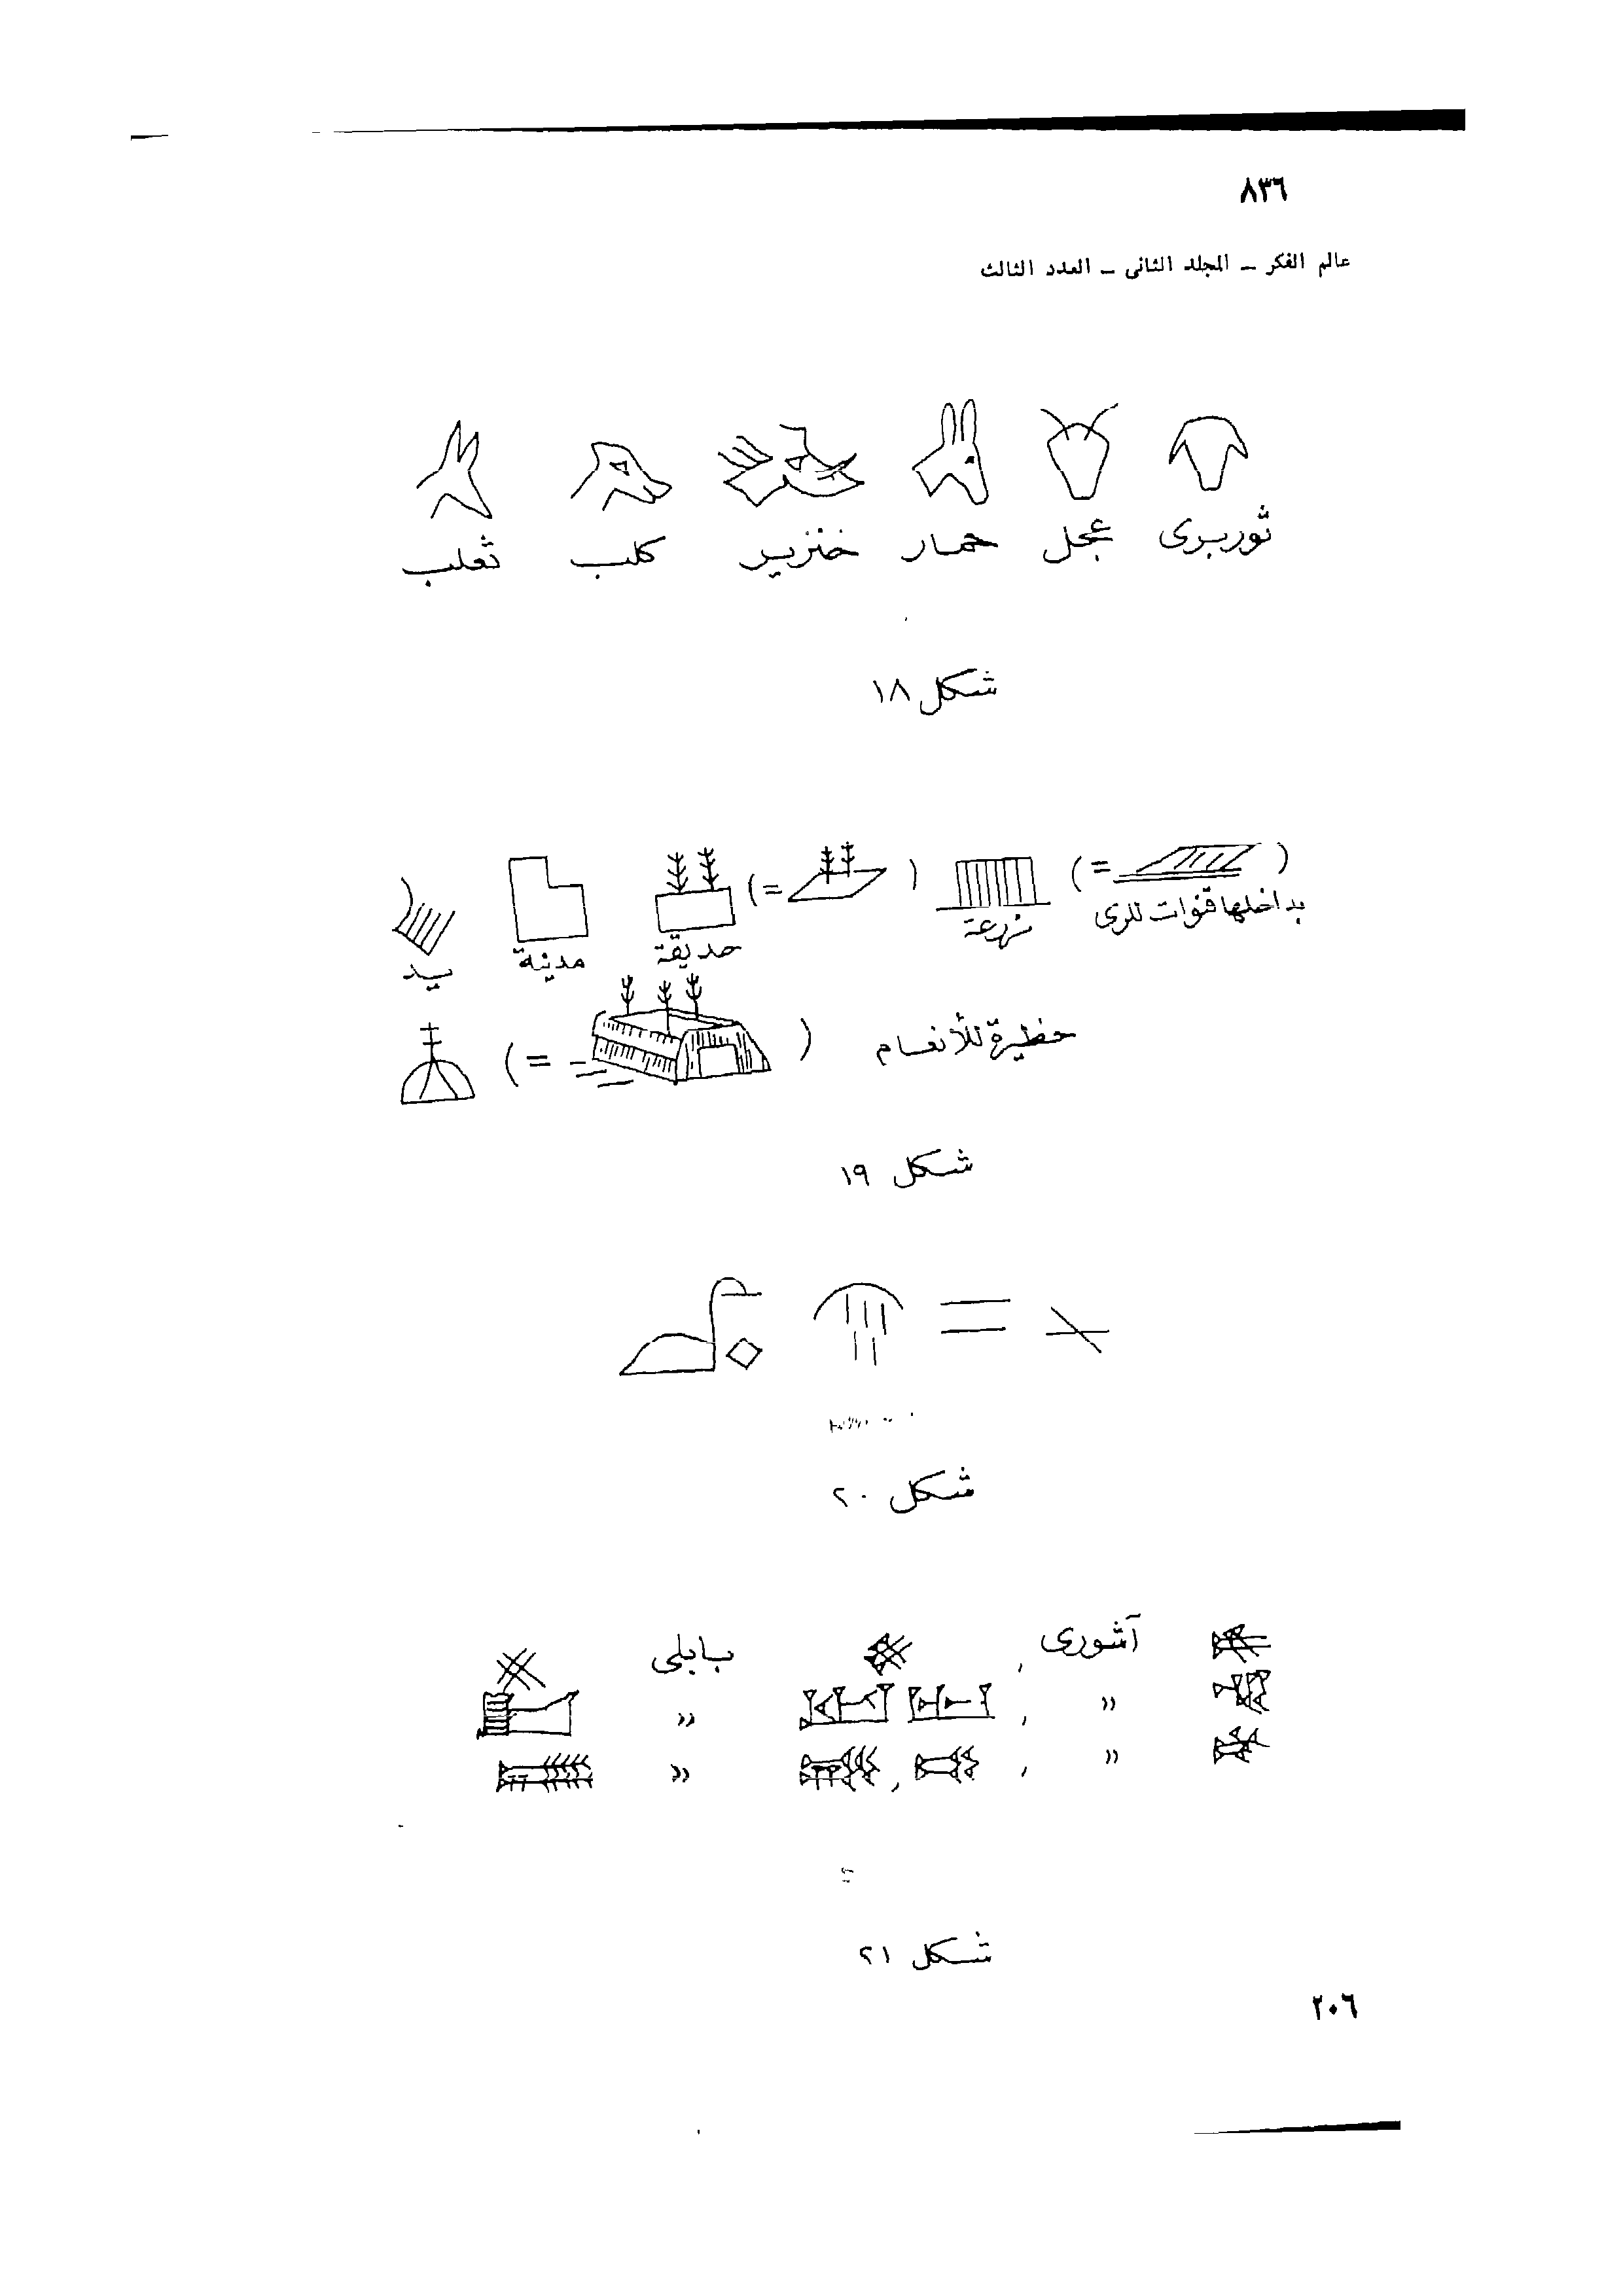 ٨٣٦
عالم الفكر – المجلد الثانى – العدد الثالث
ثور برى عجل حمار خنزير كلب ثعلب
شكل ١٨
( = )
بداخلها قنوات للرى
( = )
حديقة مدينة يد
حظيرة للأنعام ( = )
شكل ١٩
شكل ٢٠
آشورى , بابلى
» , »
» , , »
شكل ٢١
٢٠٦